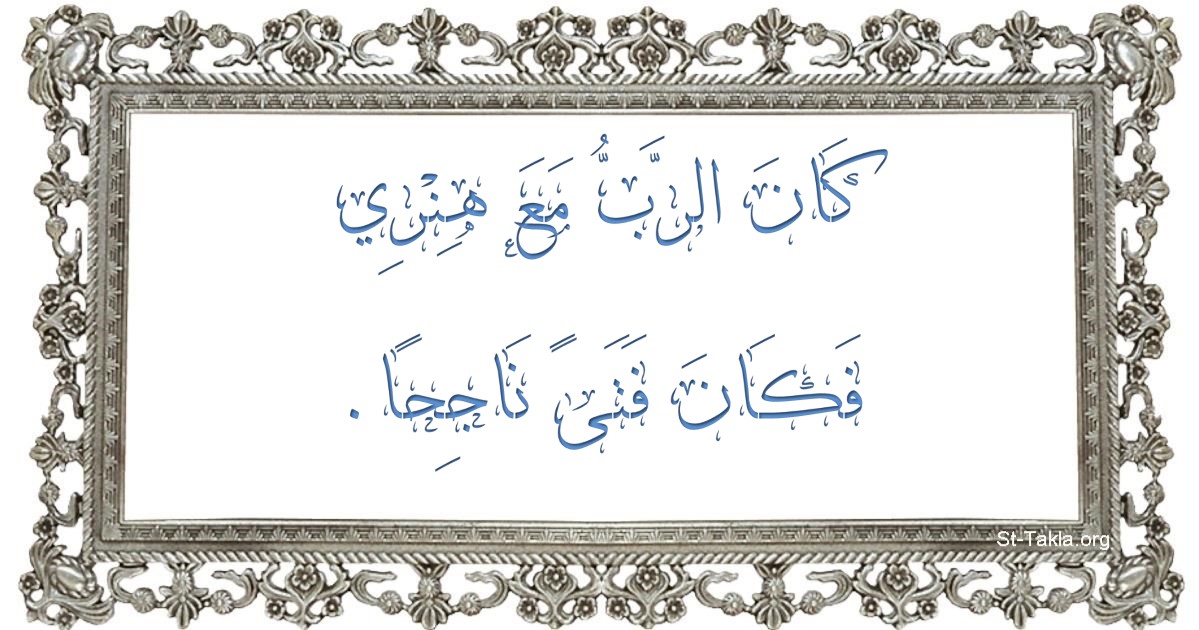 كَانَ الرَّبُّ مَعَ هِنِرْي
فَكَانَ فَتَىً نَاجِحًا .
St-Takla.org